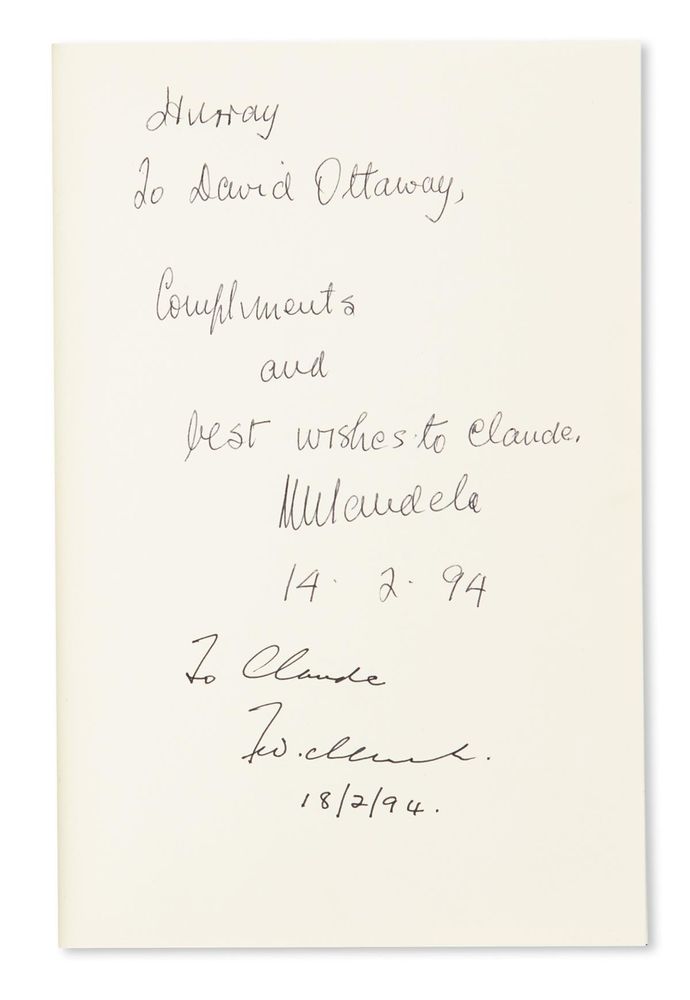 Hurray
To David Ottaway,
Compliments
and
best wishes to Claude.
NMandela
14. 2. 94
To Claude
F.W. de Klerk.
18/2/94.